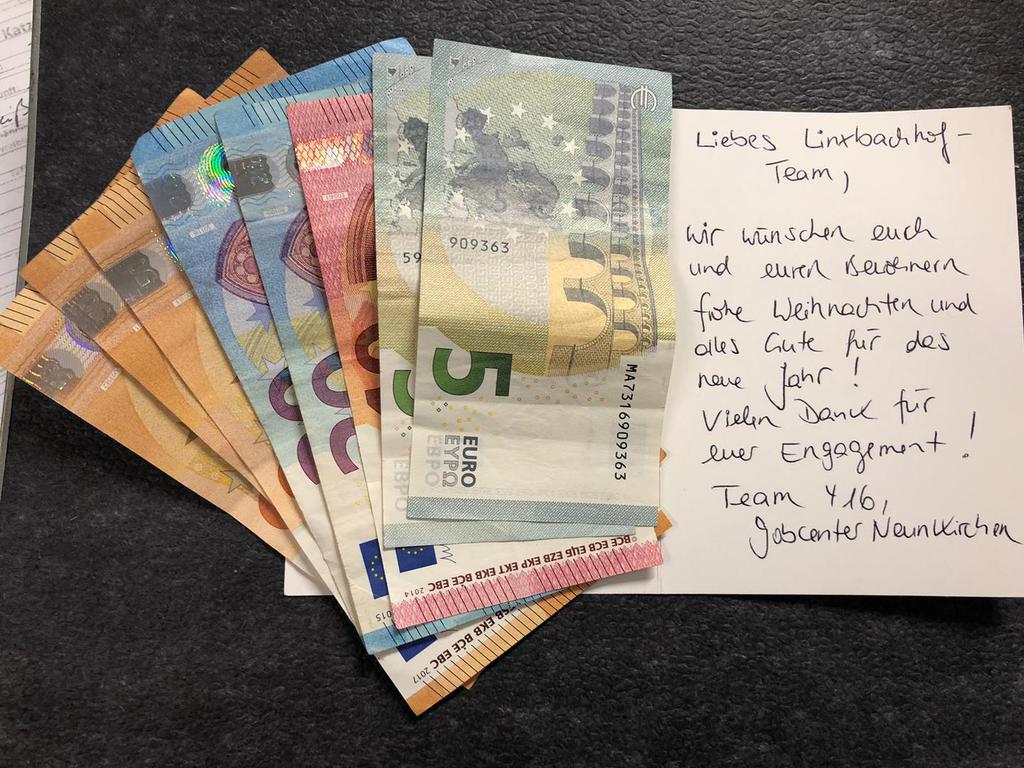 Katz
909363
59
5
EURO
ΕΥΡΩ
ЕВРО
MA7316909363
BCE ECB ЕЦБ EZB EKP EKT EKB BĊE EBC 2014
2015
EKB BĊE EBC
2017
Liebes Linxbachhof-
Team,
wir wünschen euch
und euren Bewohnern
frohe Weihnachten und
alles Gute für das
neue Jahr!
Vielen Dank für
euer Engagement!
Team 416,
Jobcenter Neunkirchen